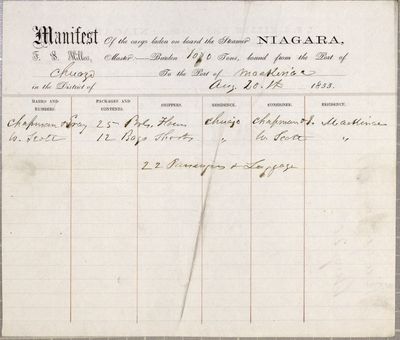 Manifest Of the cargo laden on board the Steamer NIAGARA,
F. S. Miller, Master—Burden 1090 Tons, bound from the Port of
Chicago To the Port of Mackinac
in the District of Aug. 20th 1853.
MARKS AND NUMBERS PACKAGES AND CONTENTS. SHIPPERS. RESIDENCE. CONSIGNEE. RESIDENCE.
Chapman & Gray 25 Brls. Flour Chicago Chapman & Mackinac
W. Scott 12 Bags Shorts " W. Scott "
22 Passengers & Luggage